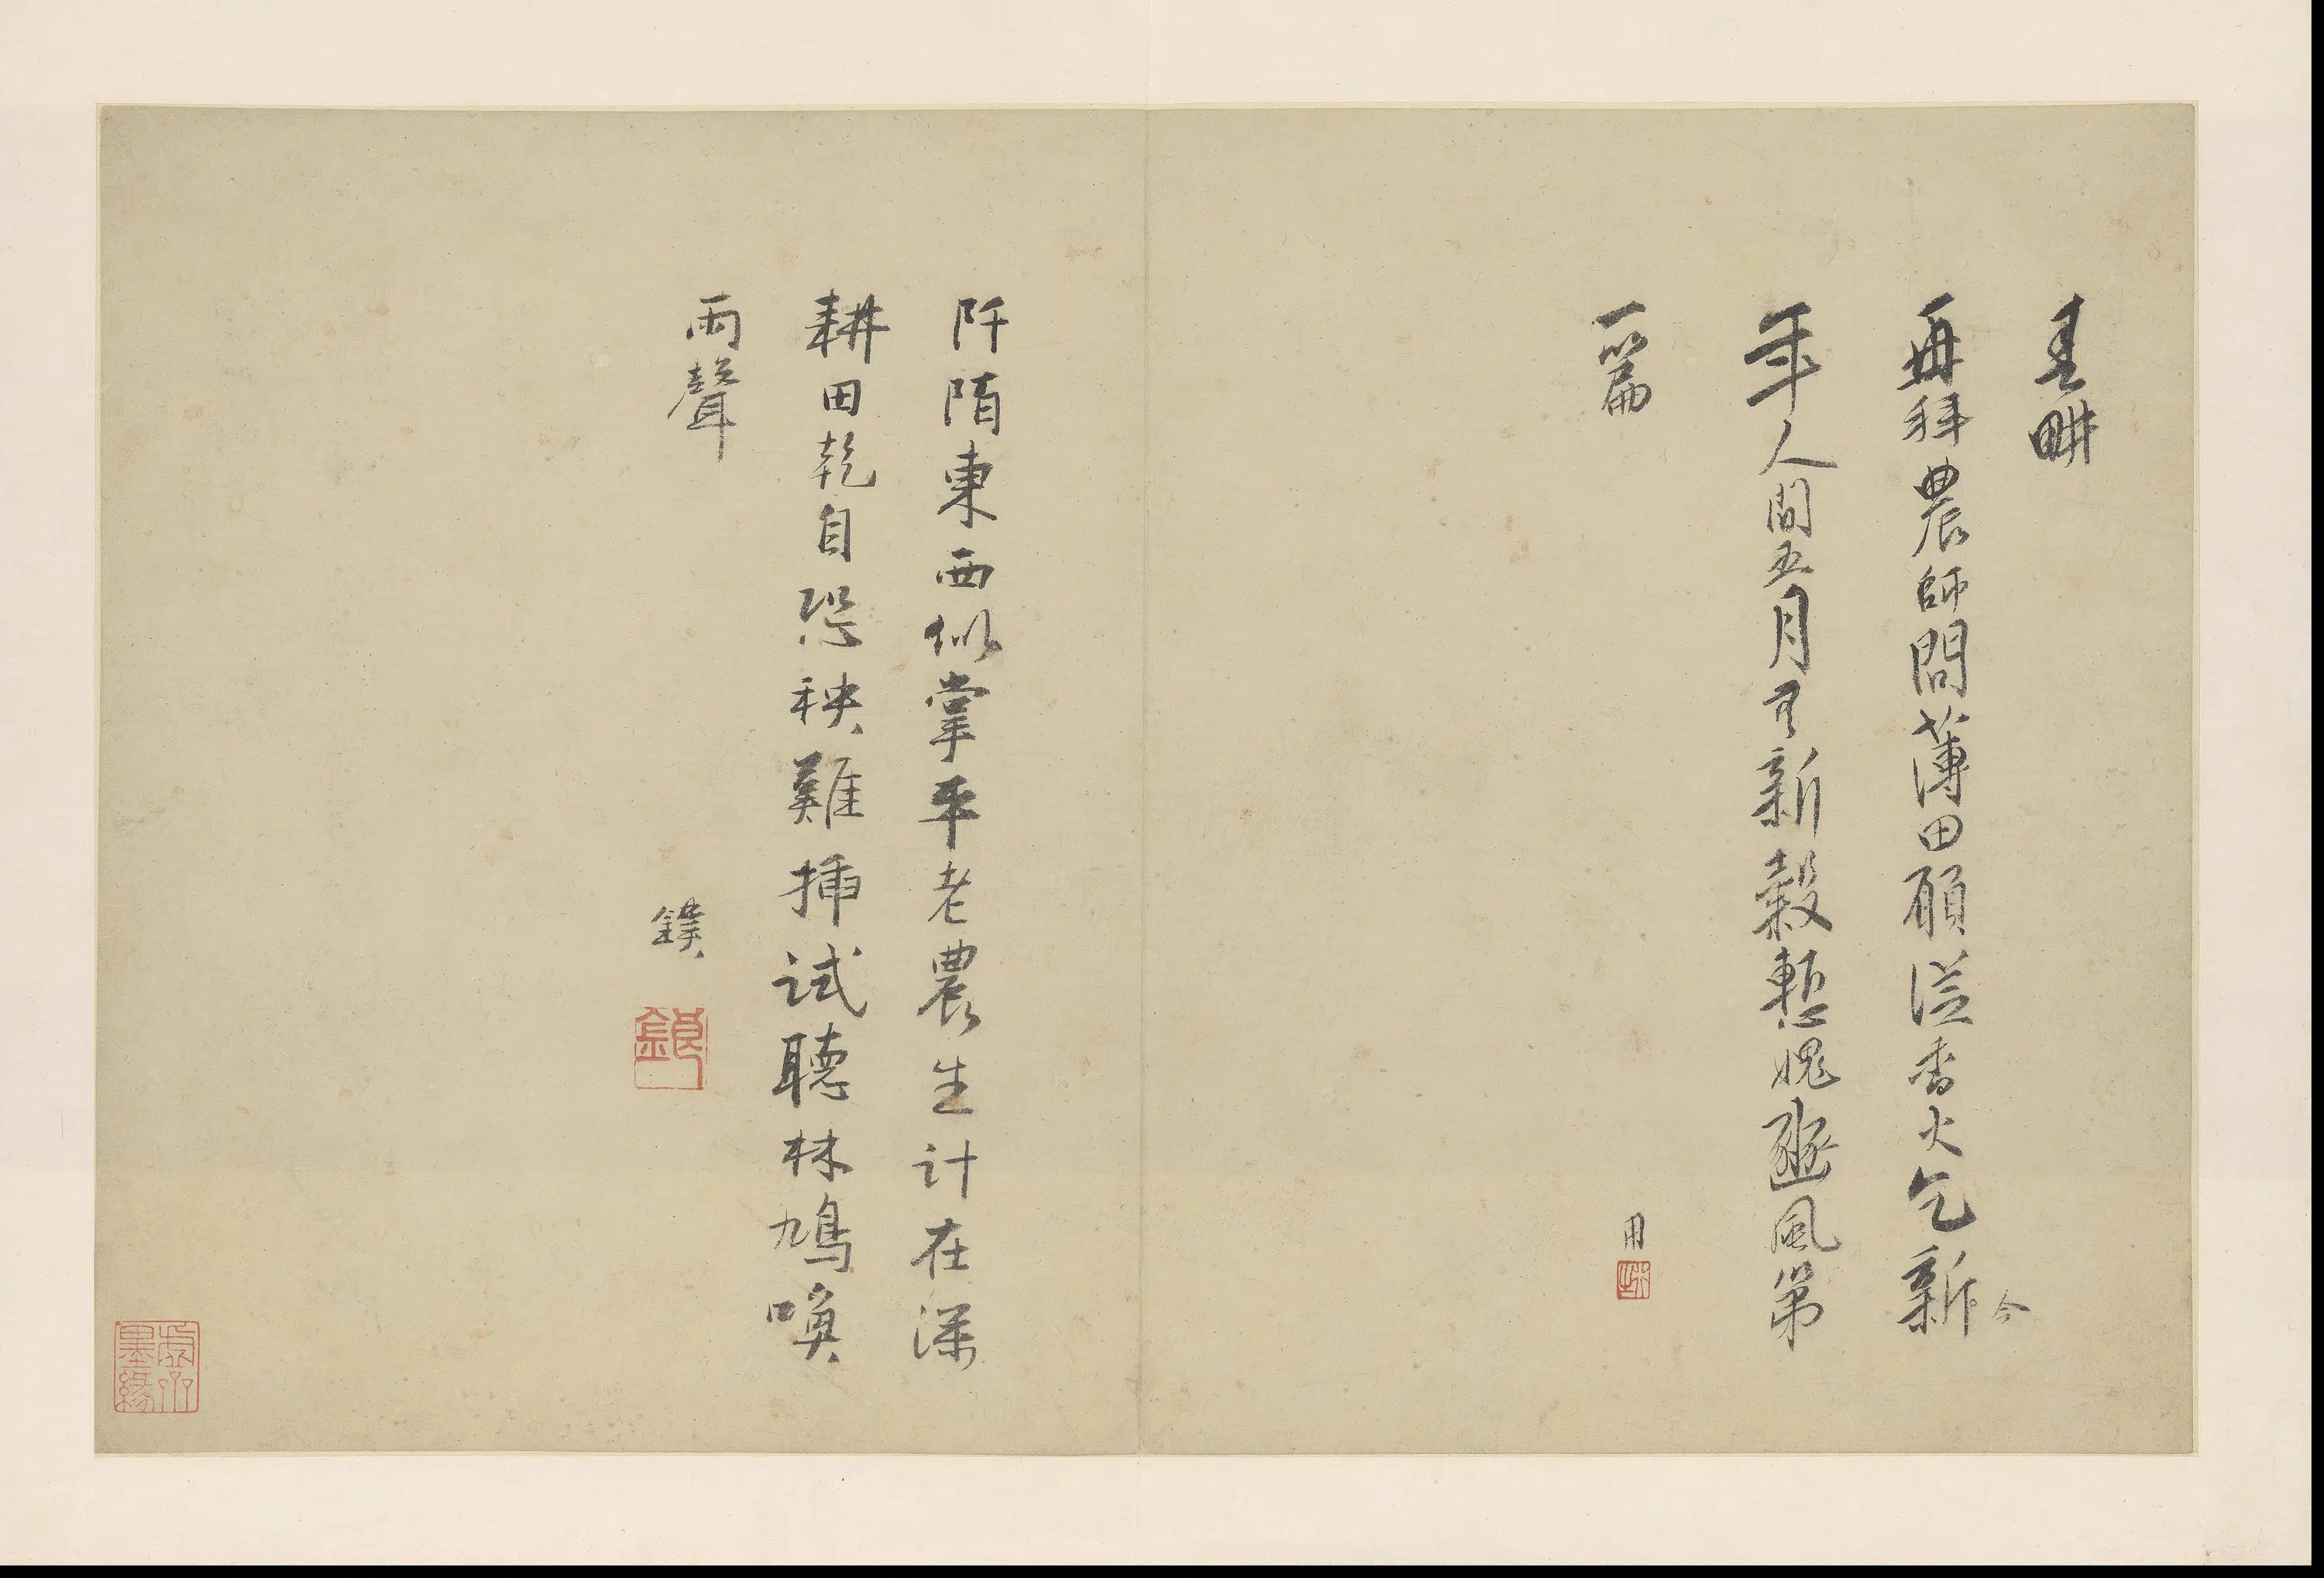 春畊
再拜農師問薄田願從香火乞新今
年人間五月可新穀慙愧豳風第
一篇
用
阡陌東西似掌平老農生計在深
耕田乾自恐秧難插試聽林鳩喚
雨聲
鏌
墨緣